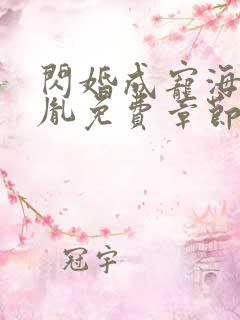 閃婚成寵海
胤免費章節
冠宇